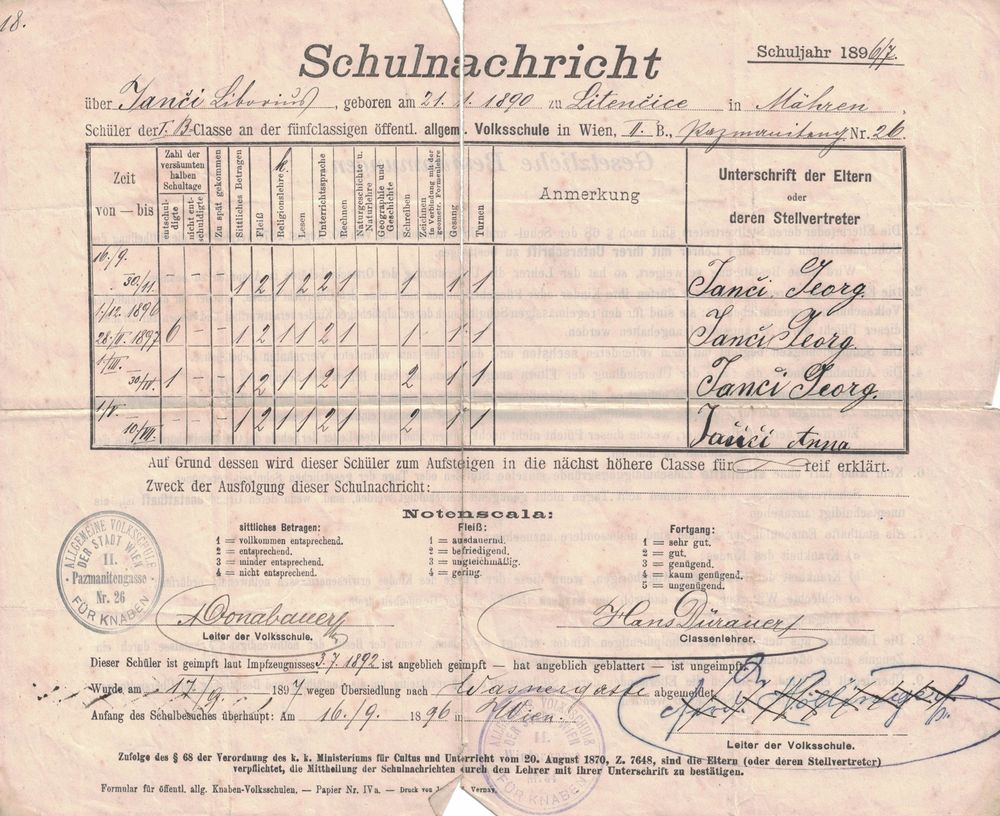 18.
Schulnachricht
Schuljahr 1896/7.
über Janči Liborius, geboren am 21. 1. 1890 zu Litenčice in Mähren,
Schüler der I. B Classe an der fünfclassigen öffentl. allgem. Volksschule in Wien, II. B., Pazmaniteng. Nr. 26
Zeit
von — bis
Zahl der versäumten halben Schultage
entschuldigte
nicht entschuldigte
Zu spät gekommen
Sittliches Betragen
Fleiß
k. Religionslehre
Lesen
Unterrichtssprache
Rechnen
Naturgeschichte u. Naturlehre
Geographie und Geschichte
Schreiben
Zeichnen in Verbindung mit der geometr. Formenlehre
Gesang
Turnen
Anmerkung
Unterschrift der Eltern
oder
deren Stellvertreter
16./9. 30/11 – – – 1 2 1 2 2 1 1 1 1 Janči Georg.
1./12. 1896 28./II. 1897 6 – – 1 2 1 1 2 1 1 1 1 Janči Georg.
1/III. 30/IV. 1 – – 1 2 1 1 2 1 2 1 1 Janči Georg.
1/V. 10/VII. – – – 1 2 1 1 2 1 2 1 1 Janči Anna
Auf Grund dessen wird dieser Schüler zum Aufsteigen in die nächst höhere Classe für reif erklärt.
Zweck der Ausfolgung dieser Schulnachricht:
Notenscala:
sittliches Betragen:
1 = vollkommen entsprechend.
2 = entsprechend.
3 = minder entsprechend.
4 = nicht entsprechend.
Fleiß:
1 = ausdauernd.
2 = befriedigend.
3 = ungleichmäßig.
4 = gering.
Fortgang:
1 = sehr gut.
2 = gut.
3 = genügend.
4 = kaum genügend.
5 = ungenügend.
ALLGEMEINE VOLKSSCHULE
DER STADT WIEN
II.
Pazmanitengasse
Nr. 26
FÜR KNABEN
Donabauer
Leiter der Volksschule.
Hans Dürauer
Classenlehrer.
Dieser Schüler ist geimpft laut Impfzeugnisses 3. 7. 1892 ist angeblich geimpft — hat angeblich geblattert — ist ungeimpft.
Wurde am 17/9. 1897 wegen Übersiedlung nach Wasnergasse abgemeldet
Anfang des Schulbesuches überhaupt: Am 16./9. 1896 in Wien.
ALLGEMEINE VOLKSSCHULE
DER STADT WIEN
II.
FÜR KNABEN
Leiter der Volksschule.
Zufolge des § 68 der Verordnung des k. k. Ministeriums für Cultus und Unterricht vom 20. August 1870, Z. 7648, sind die Eltern (oder deren Stellvertreter)
verpflichtet, die Mittheilung der Schulnachrichten durch den Lehrer mit ihrer Unterschrift zu bestätigen.
Formular für öffentl. allg. Knaben-Volksschulen. — Papier Nr. IVa. — Druck von Vernay.